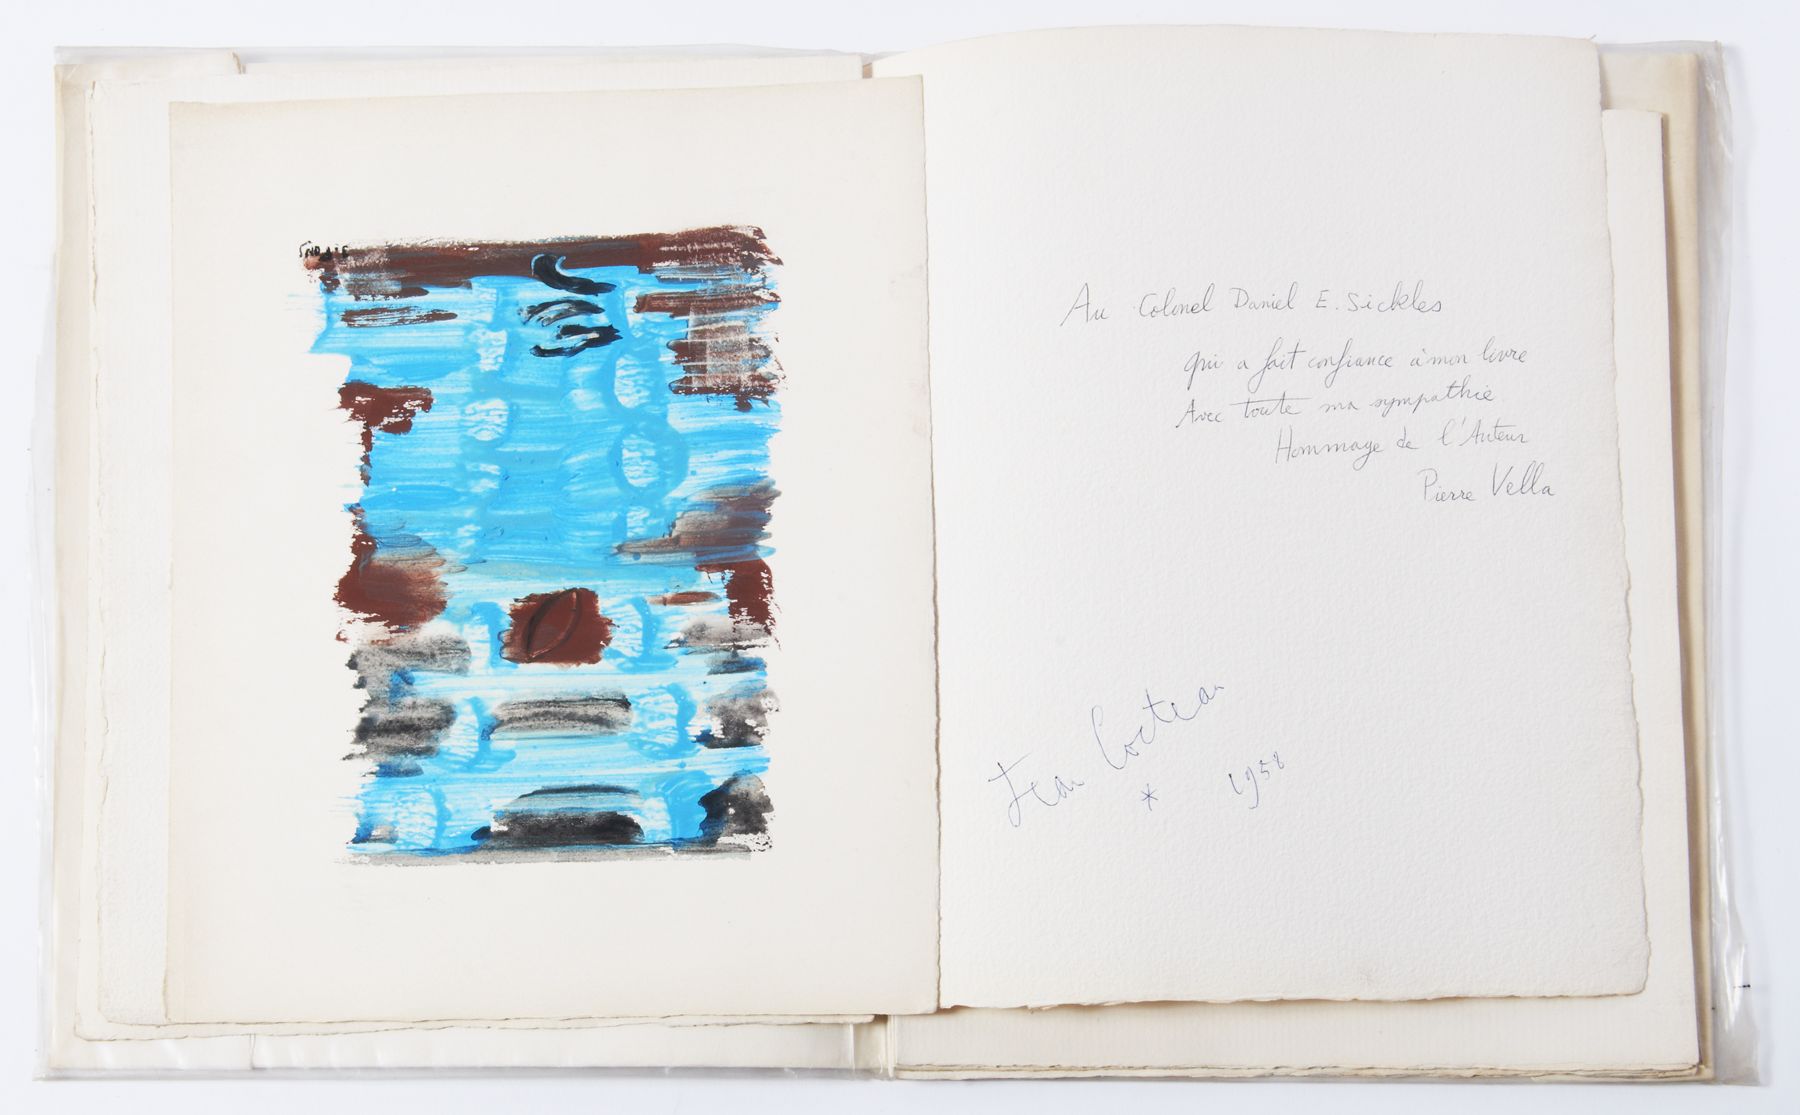 Au Colonel Daniel E. Sickles
qui a fait confiance à mon livre
Avec toute ma sympathie.
Hommage de l'Auteur
Pierre Vella
Jean Cocteau
* 1958